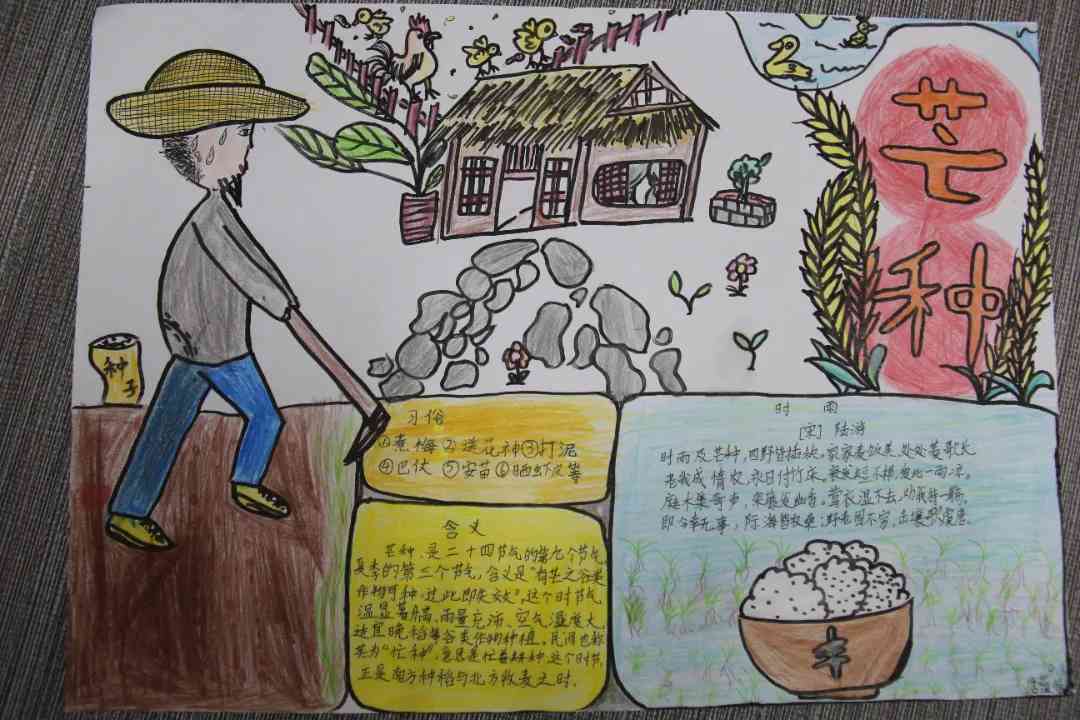 芒
种
种子
习俗
①煮梅②送花神③打泥
④巴伏⑤安苗⑥晒虾皮等
含义
芒种,是二十四节气的第九个节气,
夏季的第三个节气,含义是"有芒之谷类
作物可种,过此即失效"。这个时节气
温显著升高、雨量充沛、空气湿度大,
适宜晚稻等谷类作的种植。民间也称
芒为"忙种",意思是忙着耕种,这个时节,
正是南方种稻与北方收麦之时。
时雨
[宋]陆游
时雨及芒种,四野皆插秧。家家麦饭美,处处菱歌长
老我成惰农,永日付竹床。衰发短不栉,爱此一雨凉。
庭木集奇声,架藤发幽香。莺衣湿不去,劝我持一觞。
即今幸无事,际海皆农桑;野老固不穷,击壤歌虞唐。